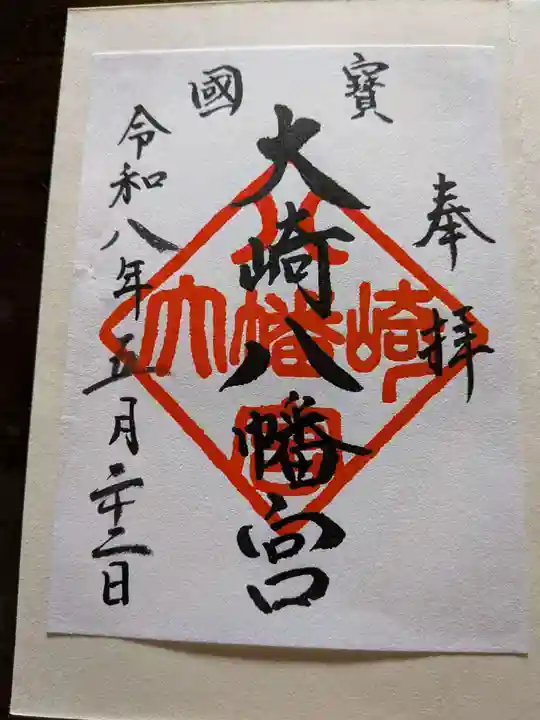 國寶
奉拝
大崎八幡宮
令和八年五月二十二日